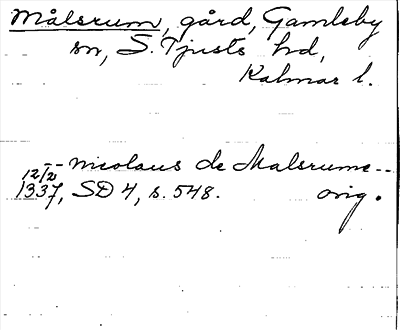 Målsrum, gård, Gamleby
sn, S. Tjusts hd,
Kalmar l.
-- Nicolaus de Malsrume --
12/2
1337, SD 4, s. 548. orig.